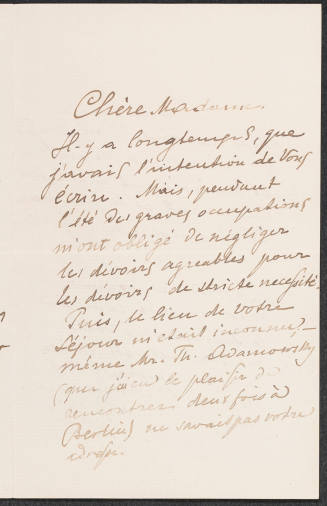 Chère Madame.
Il-y a longtemps, que
j'avais l'intention de Vous
écrire. Mais, pendant
l'été des graves occupations
m'ont obligé de négliger
les dévoirs agreables pour
les dévoirs de stricte necessité.
Puis, le lieu de votre
séjour m'était inconnu, —
même Mr. Th. Adamowsky
(que j'ai eu le plaisir de
rencontrer deux fois à
Berlin) ne savait pas votre
adresse.